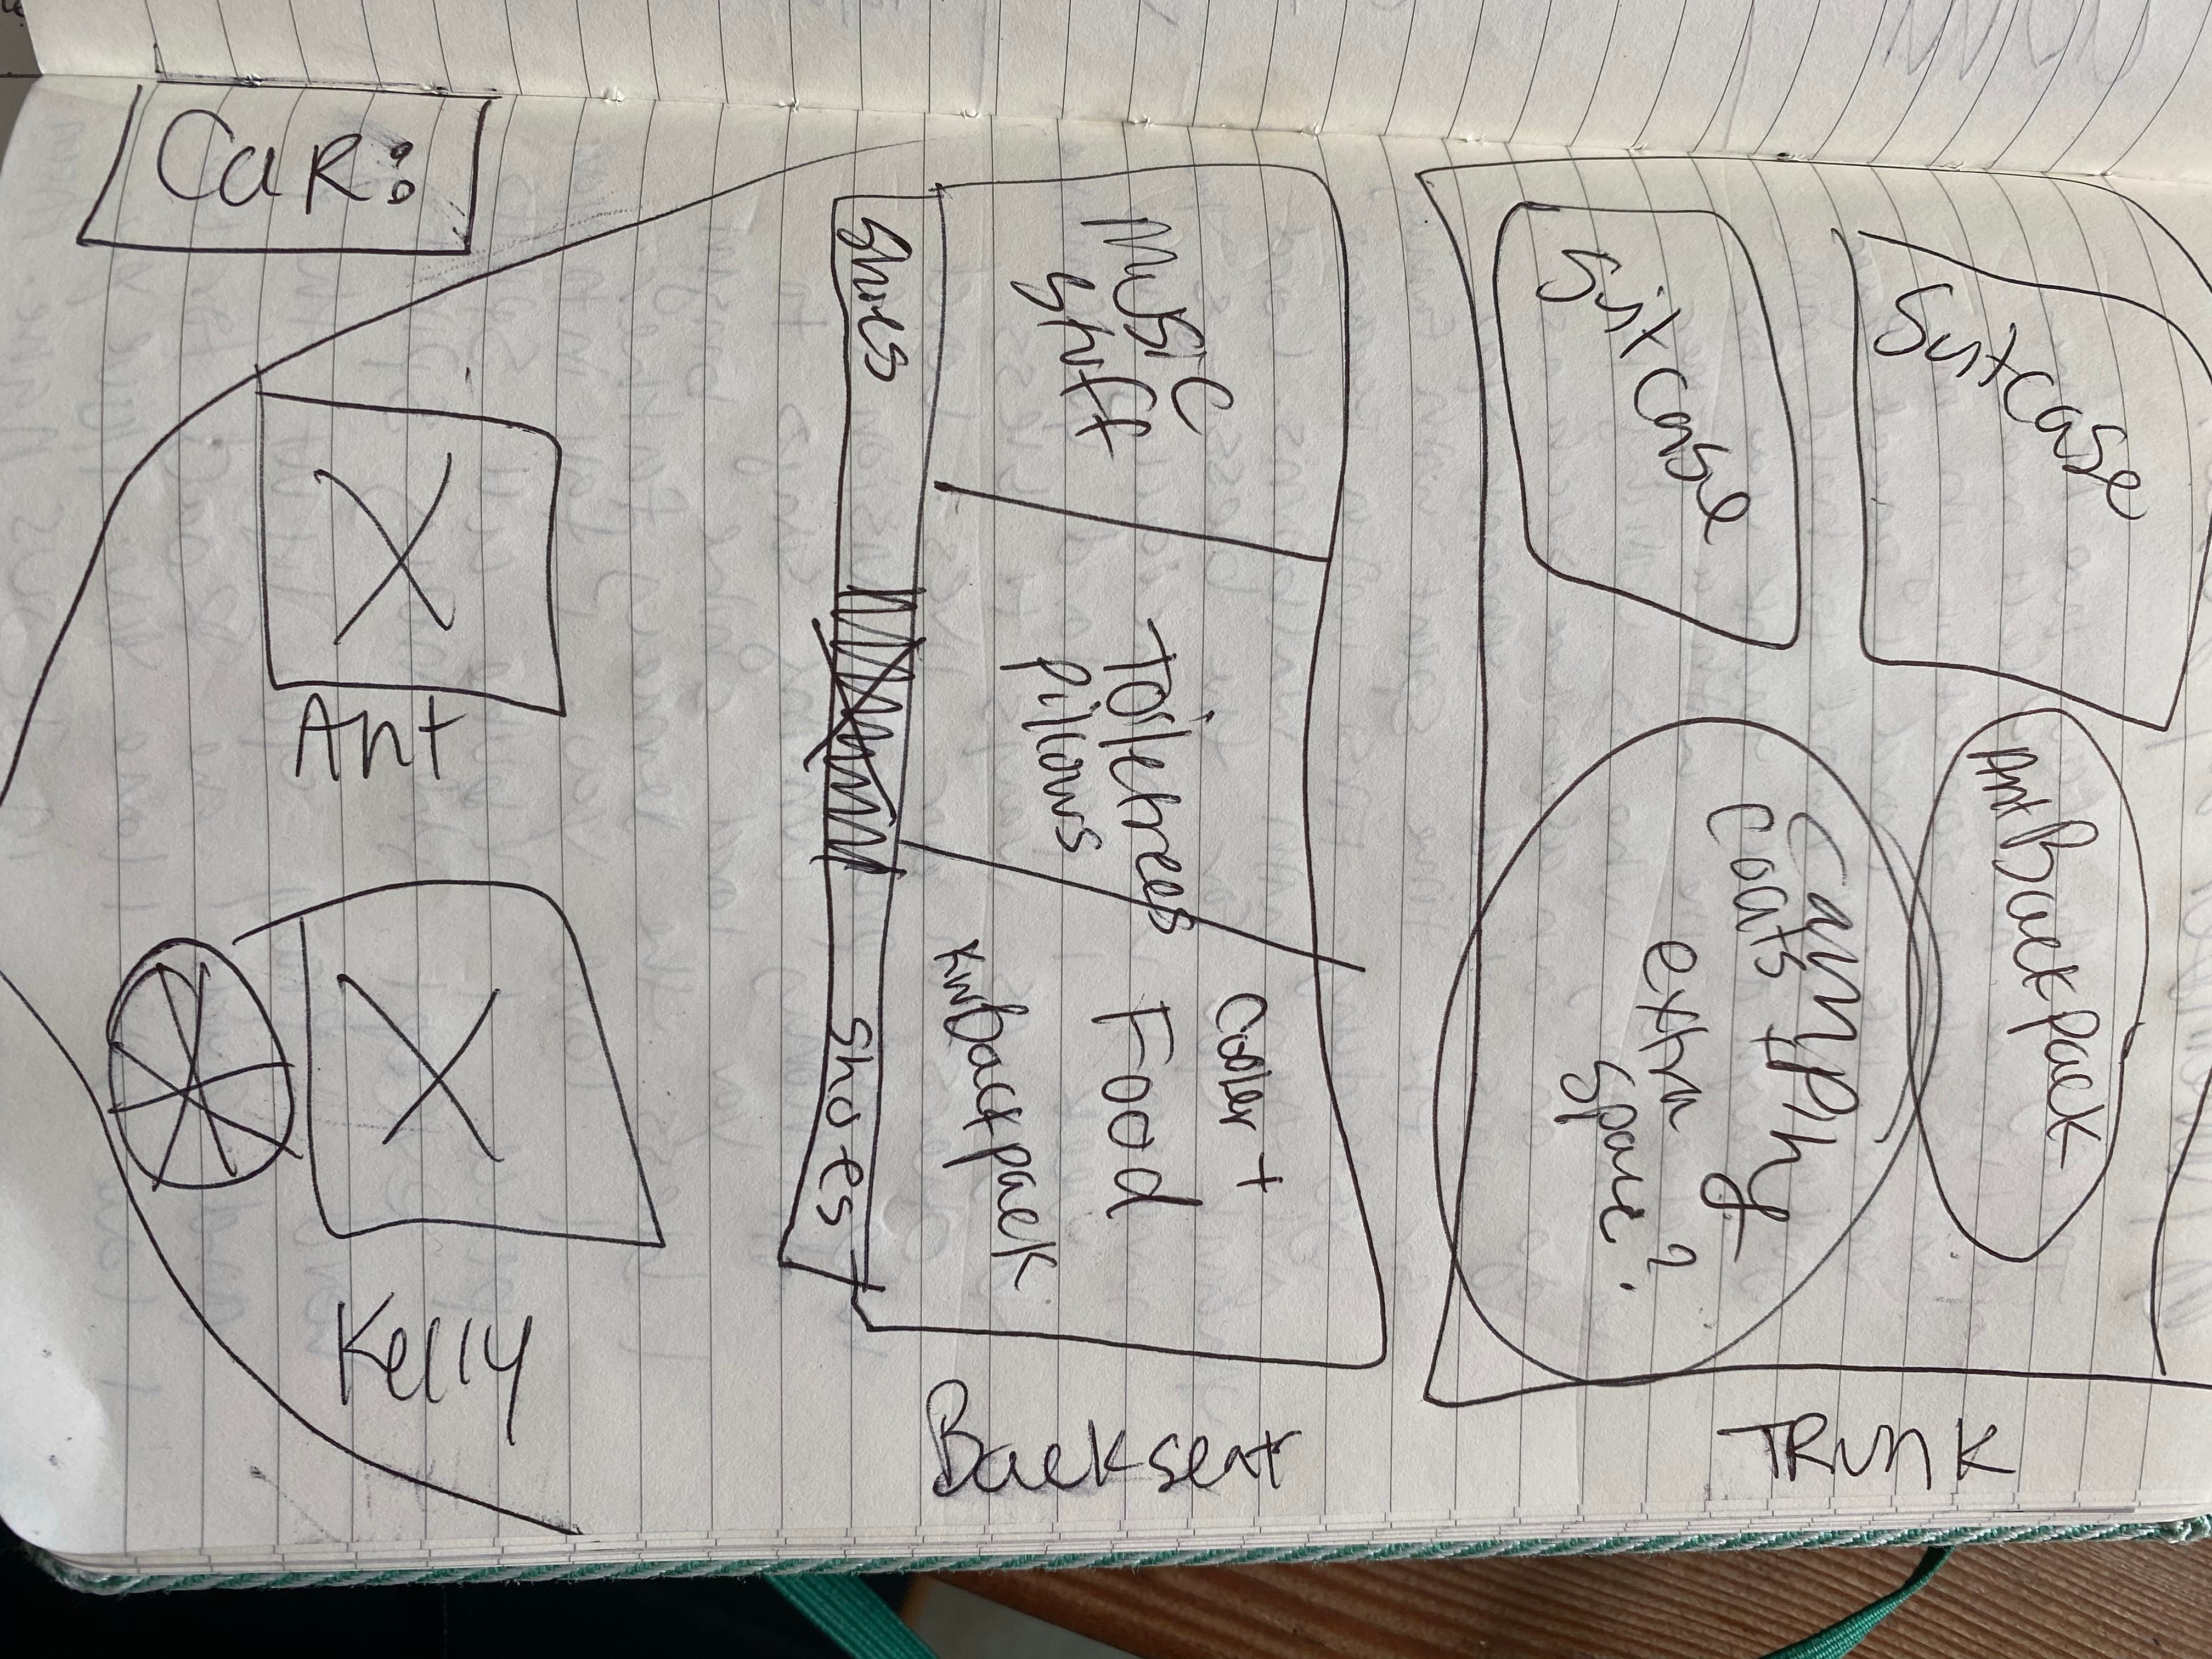 Car:
Ant
Kelly
Shoes
Shoes
Music
Stuff
Toiletries
pillows
Cooler +
Food
KW Backpack
Backseat
Suitcase
Suitcase
Ant Backpack
Coats
extra
space?
TRunk